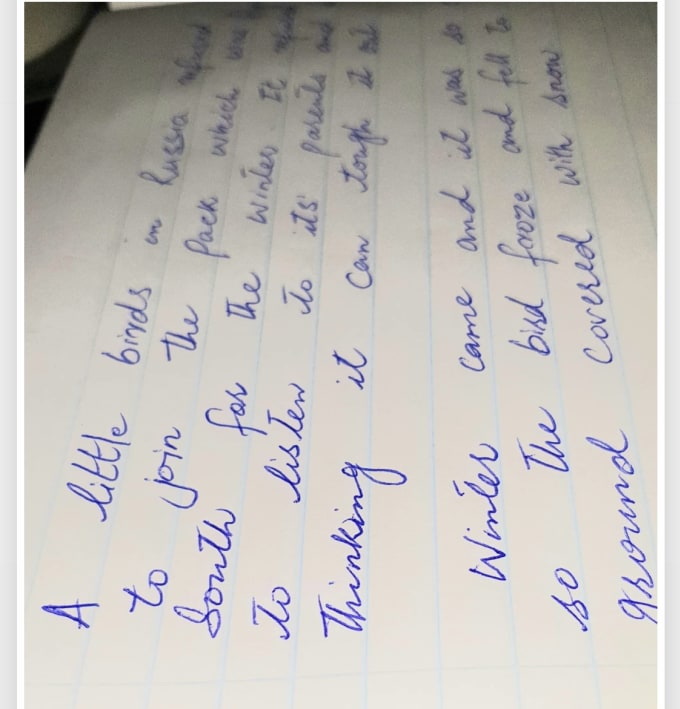 A little birds in Russia refused
to join the pack which was
South for the winter. It
to listen to its' parents and
Thinking it can tough it out
Winter came and it was so
so the bird froze and fell to
ground covered with snow